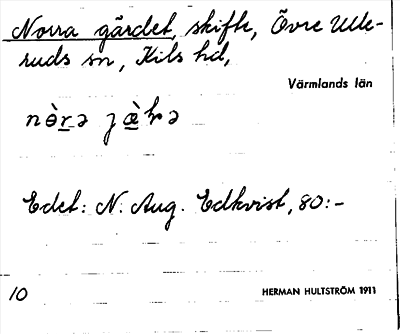 Norra gärdet, skifte, Övre Ulle-
ruds sn, Kils hd,
Värmlands län
nòrə jæ̀ʈə
Edet: N. Aug. Edkvist, 80:-
10
HERMAN HULTSTRÖM 1911